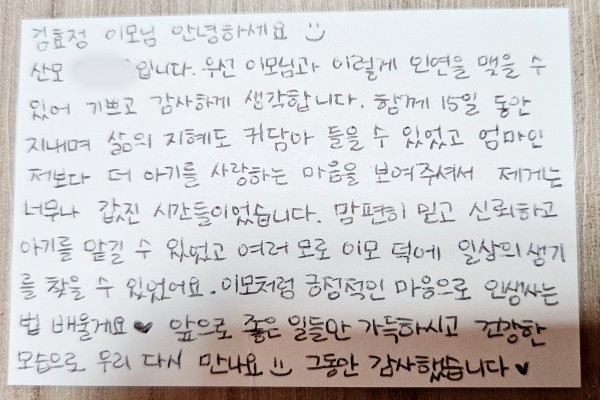 김효정 이모님 안녕하세요 :)
산모 입니다. 우선 이모님과 이렇게 인연을 맺을 수
있어 기쁘고 감사하게 생각합니다. 함께 15일 동안
지내며 삶의 지혜도 귀담아 들을 수 있었고 엄마인
저보다 더 아기를 사랑하는 마음을 보여주셔서 제게는
너무나 값진 시간들이었습니다. 맘편히 믿고 신뢰하고
아기를 맡길 수 있었고 여러 모로 이모 덕에 일상의 생기
를 찾을 수 있었어요. 이모처럼 긍정적인 마음으로 인생사는
법 배울게요 ♥ 앞으로 좋은 일들만 가득하시고 건강한
모습으로 우리 다시 만나요 :) 그동안 감사했습니다 ♥